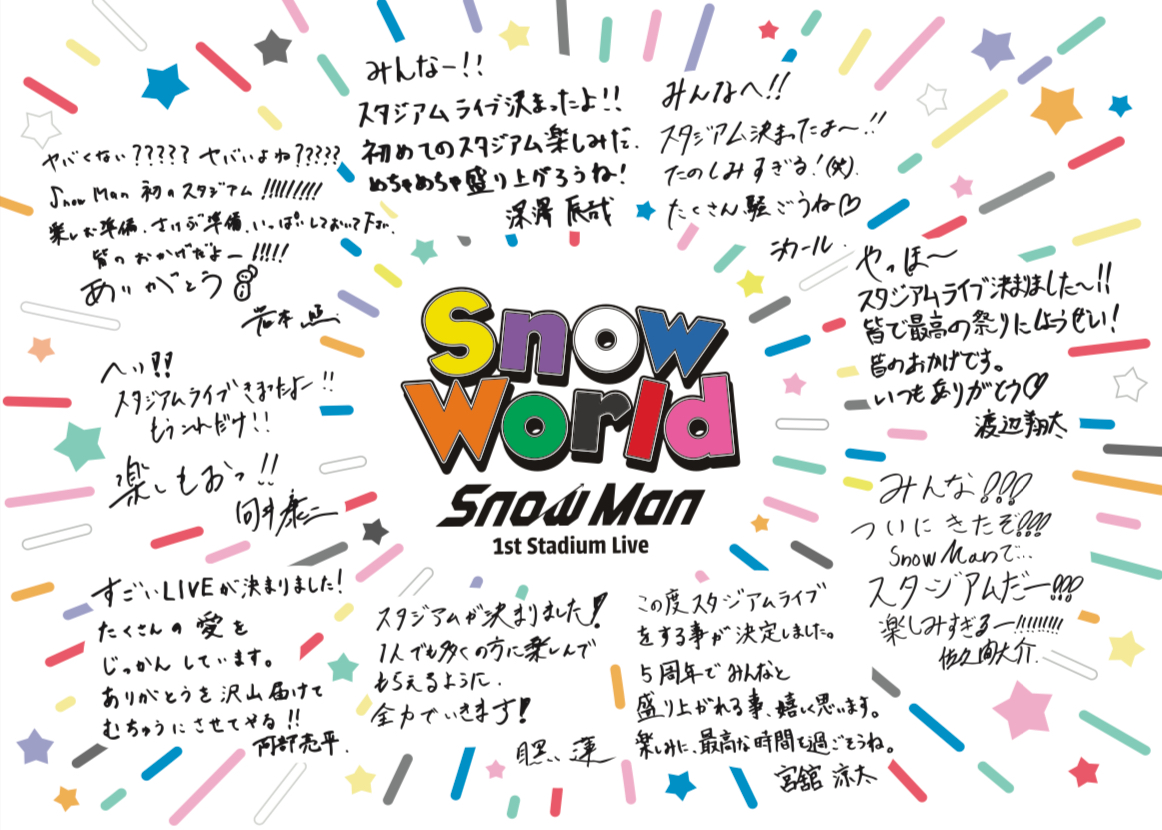 みんなー!!
スタジアムライブ決まったよ!!
初めてのスタジアム楽しみだ.
めちゃめちゃ盛り上がろうね!
深澤 辰哉
みんなへ!!
スタジアム決まったよ〜!!
たのしみすぎる!(笑).
たくさん騒ごうね♡
ラウール.
ヤバくない????? ヤバいよね?????
Snow Man 初のスタジアム!!!!!!!!!
楽しむ準備、さけぶ準備、いっぱいしておいて下さい、
皆のおかげだよー!!!!!
ありがとう
岩本 照.
やっほ〜
スタジアムライブ決まりました〜!!
皆で最高の祭りにしようぜい!
皆のおかげです。
いつもありがとう♡
渡辺翔太
Snow
World
Snow Man
1st Stadium Live
へい!!
スタジアムライブきまったよー!!
もうこれだけ!!
楽しもおっ!!
向井康二
みんな!!!
ついにきたぞ!!!
Snow Manで...
スタジアムだー!!!
楽しみすぎるー!!!!!!!!!
佐久間大介.
すごいLIVEが決まりました!
たくさんの愛を
じっかんしています。
ありがとうを沢山届けて
むちゅうにさせてやる!!
阿部亮平.
スタジアムが決まりました!
1人でも多くの方に楽しんで
もらえるように.
全力でいきます!
目黒 蓮
この度スタジアムライブ
をする事が決定しました。
5周年でみんなと
盛り上がれる事、嬉しく思います。
楽しみに、最高な時間を過ごそうね。
宮舘 涼太